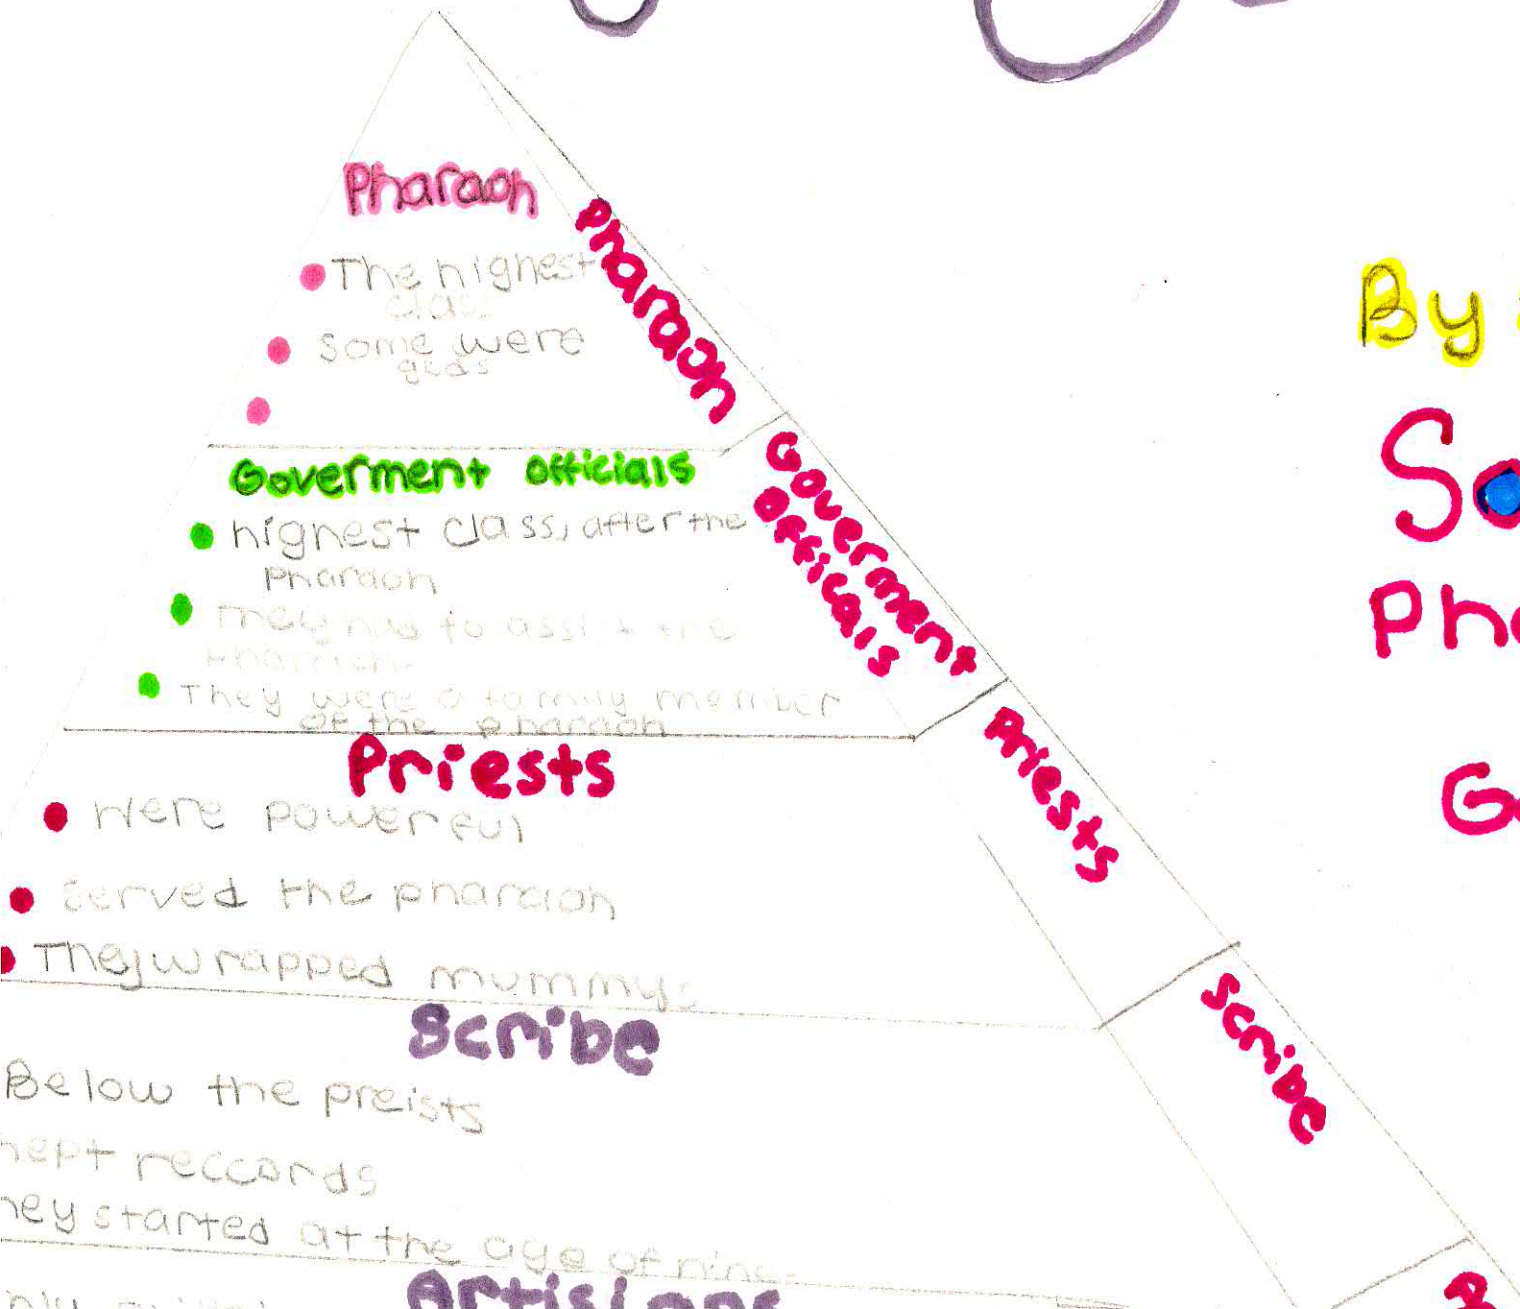 Pharaoh
The highest
class
Some were
gods
Pharaoh
Goverment officials
highest class, after the
pharaoh
They had to assist the
They were a family member
of the pharaoh
Goverment
Officals
Priests
Were powerful
Served the pharaoh
They wrapped mummys
Priests
Scribe
Below the preists
kept reccords
hey started at the age of nine.
Scribe
Artisians
By
So
Pha
G